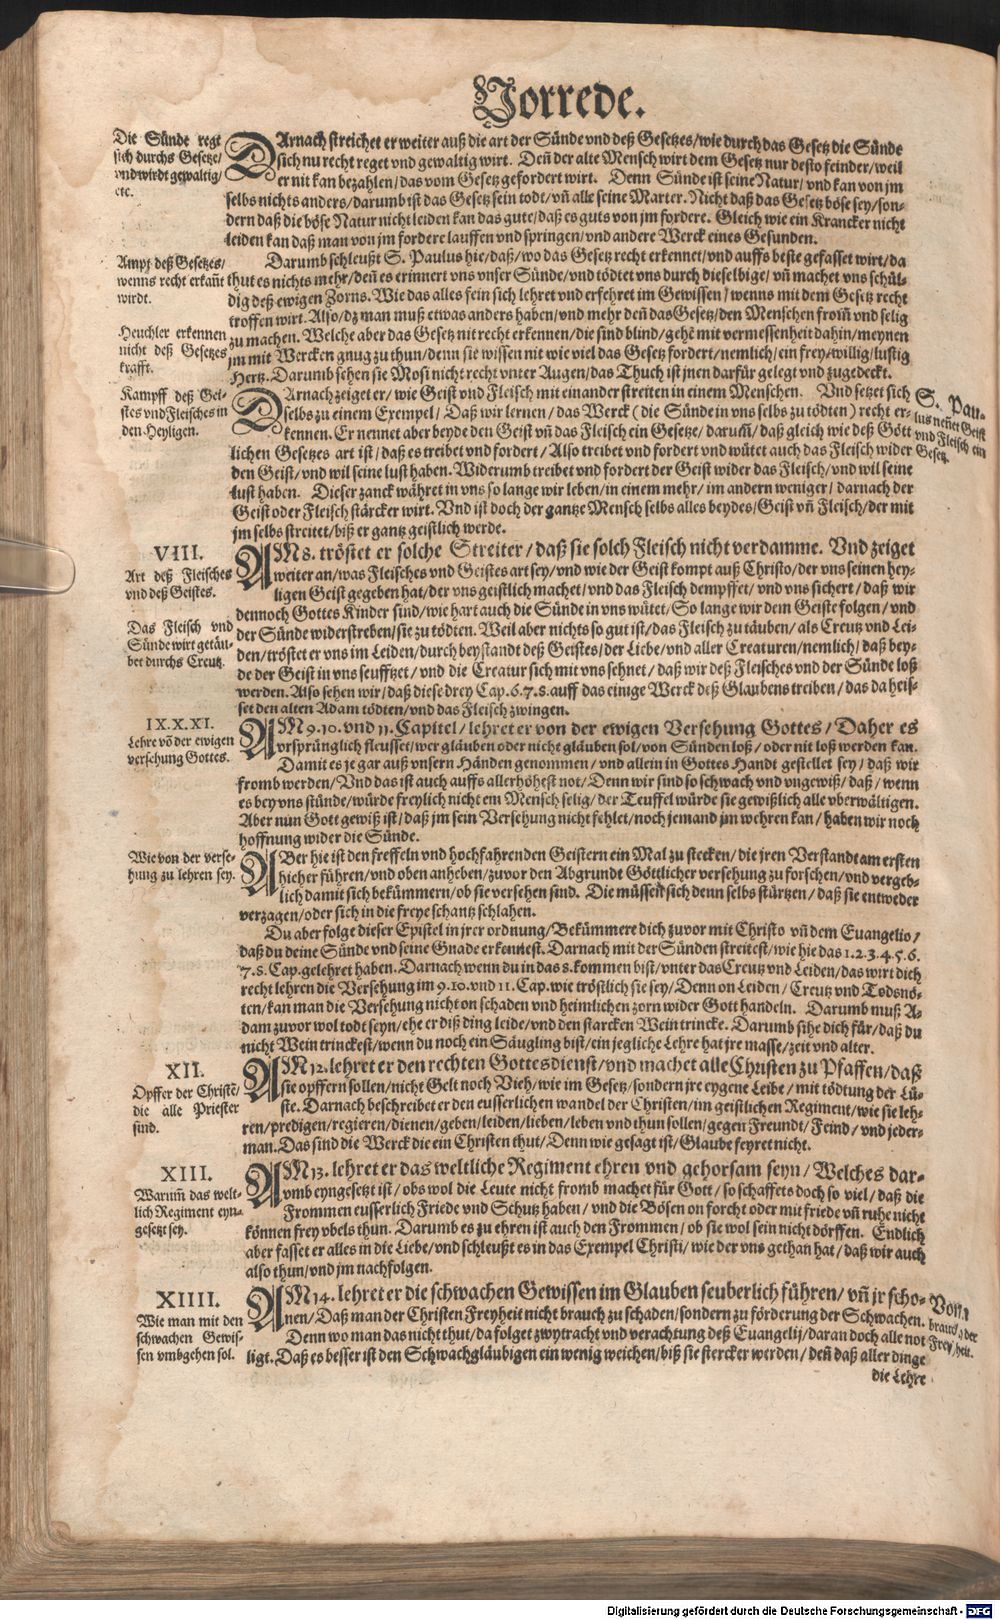 Vorrede.
Die Sünde regt
sich durchs Gesetze/
vnd wirdt gewaltig/
etc.
DArnach streichet er weiter auß die art der Sünde vnd deß Gesetzes/ wie durch das Gesetz die Sünde
sich nu recht reget vnd gewaltig wirt. Deñ der alte Mensch wirt dem Gesetz nur desto feinder/ weil
er nit kan bezahlen/ das vom Gesetz gefordert wirt. Denn Sünde ist seine Natur/ vnd kan von jm
selbs nichts anders/ darumb ist das Gesetz sein todt/ vñ alle seine Marter. Nicht daß das Gesetz böse sey/ son-
dern daß die böse Natur nicht leiden kan das gute/ daß es guts von jm fordere. Gleich wie ein Krancker nicht
leiden kan daß man von jm fordere lauffen vnd springen/ vnd andere Werck eines Gesunden.
Ampt deß Gesetzes/
wenns recht erkañt
wirdt.
Darumb schleußt S. Paulus hie/ daß/ wo das Gesetz recht erkennet/ vnd auffs beste gefasset wirt/ da
thut es nichts mehr/ deñ es erinnert vns vnser Sünde/ vnd tödtet vns durch dieselbige/ vñ machet vns schül-
dig deß ewigen Zorns. Wie das alles fein sich lehret vnd erfehret im Gewissen/ wenns mit dem Gesetz recht
troffen wirt. Also/ dz man muß etwas anders haben/ vnd mehr deñ das Gesetz/ den Menschen from̃ vnd selig
Heuchler erkennen
nicht deß Gesetzes
krafft.
zu machen. Welche aber das Gesetz nit recht erkennen/ die sind blind/ gehẽ mit vermessenheit dahin/ meynen
jm mit Wercken gnug zu thun/ denn sie wissen nit wie viel das Gesetz fordert/ nemlich/ ein frey/ willig/ lustig
Hertz. Darumb sehen sie Mosi nicht recht vnter Augen/ das Thuch ist jnen darfür gelegt vnd zugedeckt.
Kampff deß Gei-
stes vnd Fleisches in
den Heyligen.
DArnach zeiget er/ wie Geist vnd Fleisch mit einander streiten in einem Menschen. Vnd setzet sich
selbs zu einem Exempel/ Daß wir lernen/ das Werck (die Sünde in vns selbs zu tödten) recht er-
kennen. Er nennet aber beyde den Geist vñ das Fleisch ein Gesetze/ darum̃/ daß gleich wie deß Gött-
S. Pau-
lus neñet Geist
vnd Fleisch ein
Gesetz.
lichen Gesetzes art ist/ daß es treibet vnd fordert/ Also treibet vnd fordert vnd wütet auch das Fleisch wider
den Geist/ vnd wil seine lust haben. Widerumb treibet vnd fordert der Geist wider das Fleisch/ vnd wil seine
lust haben. Dieser zanck währet in vns so lange wir leben/ in einem mehr/ im andern weniger/ darnach der
Geist oder Fleisch stärcker wirt. Vnd ist doch der gantze Mensch selbs alles beydes/ Geist vñ Fleisch/ der mit
jm selbs streitet/ biß er gantz geistlich werde.
VIII.
Art deß Fleisches
vnd deß Geistes.
AM 8. tröstet er solche Streiter/ daß sie solch Fleisch nicht verdamme. Vnd zeiget
weiter an/ was Fleisches vnd Geistes art sey/ vnd wie der Geist kompt auß Christo/ der vns seinen hey-
ligen Geist gegeben hat/ der vns geistlich machet/ vnd das Fleisch dempffet/ vnd vns sichert/ daß wir
dennoch Gottes Kinder sind/ wie hart auch die Sünde in vns wütet/ So lange wir dem Geiste folgen/ vnd
Das Fleisch vnd
Sünde wirt getäu-
bet durchs Creutz.
der Sünde widerstreben/ sie zu tödten. Weil aber nichts so gut ist/ das Fleisch zu täuben/ als Creutz vnd Lei-
den/ tröstet er vns im Leiden/ durch beystandt deß Geistes/ der Liebe/ vnd aller Creaturen/ nemlich/ daß bey-
de der Geist in vns seufftzet/ vnd die Creatur sich mit vns sehnet/ daß wir deß Fleisches vnd der Sünde loß
werden. Also sehen wir/ daß diese drey Cap. 6. 7. 8. auff das einige Werck deß Glaubens treiben/ das da heis-
set den alten Adam tödten/ vnd das Fleisch zwingen.
IX. X. XI.
Lehre võ der ewigen
versehung Gottes.
AM 9. 10. vnd 11. Capitel/ lehret er von der ewigen Versehung Gottes/ Daher es
vrsprünglich fleusset/ wer gläuben oder nicht gläuben sol/ von Sünden loß/ oder nit loß werden kan.
Damit es je gar auß vnsern Händen genommen/ vnd allein in Gottes Handt gestellet sey/ daß wir
fromb werden/ Vnd das ist auch auffs allerhöhest not/ Denn wir sind so schwach vnd vngewiß/ daß/ wenn
es bey vns stünde/ würde freylich nicht ein Mensch selig/ der Teuffel würde sie gewißlich alle vberwältigen.
Aber nun Gott gewiß ist/ daß jm sein Versehung nicht fehlet/ noch jemand jm wehren kan/ haben wir noch
hoffnung wider die Sünde.
Wie von der verse-
hung zu lehren sey.
ABer hie ist den freffeln vnd hochfahrenden Geistern ein Mal zu stecken/ die jren Verstandt am ersten
hieher führen/ vnd oben anheben/ zuvor den Abgrundt Göttlicher versehung zu forschen/ vnd vergeb-
lich damit sich bekümmern/ ob sie versehen sind. Die müssen sich denn selbs stürtzen/ daß sie entweder
verzagen/ oder sich in die freye schantz schlahen.
Du aber folge dieser Epistel in jrer ordnung/ Bekümmere dich zuvor mit Christo vñ dem Euangelio/
daß du deine Sünde vnd seine Gnade erkennest. Darnach mit der Sünden streitest/ wie hie das 1. 2. 3. 4. 5. 6.
7. 8. Cap. gelehret haben. Darnach wenn du in das 8. kommen bist/ vnter das Creutz vnd Leiden/ das wirt dich
recht lehren die Versehung im 9. 10. vnd 11. Cap. wie tröstlich sie sey/ Denn on Leiden/ Creutz vnd Todsnö-
ten/ kan man die Versehung nicht on schaden vnd heimlichen zorn wider Gott handeln. Darumb muß A-
dam zuvor wol todt seyn/ ehe er diß ding leide/ vnd den starcken Wein trincke. Darumb sihe dich für/ daß du
nicht Wein trinckest/ wenn du noch ein Säugling bist/ ein jegliche Lehre hat jre masse/ zeit vnd alter.
XII.
Opffer der Christẽ/
die alle Priester
sind.
AM 12. lehret er den rechten Gottesdienst/ vnd machet alle Christen zu Pfaffen/ daß
sie opffern sollen/ nicht Gelt noch Vieh/ wie im Gesetz/ sondern jre eygene Leibe/ mit tödtung der Lü-
ste. Darnach beschreibet er den eusserlichen wandel der Christen/ im geistlichen Regiment/ wie sie leh-
ren/ predigen/ regieren/ dienen/ geben/ leiden/ lieben/ leben vnd thun sollen/ gegen Freundt/ Feind/ vnd jeder-
man. Das sind die Werck die ein Christen thut/ Denn wie gesagt ist/ Glaube feyret nicht.
XIII.
Warum̃ das welt-
lich Regiment eyn-
gesetzt sey.
AM 13. lehret er das weltliche Regiment ehren vnd gehorsam seyn/ Welches dar-
vmb eyngesetzt ist/ obs wol die Leute nicht fromb machet für Gott/ so schaffets doch so viel/ daß die
Frommen eusserlich Friede vnd Schutz haben/ vnd die Bösen on forcht oder mit friede vñ ruhe nicht
können frey vbels thun. Darumb es zu ehren ist auch den Frommen/ ob sie wol sein nicht dörffen. Endlich
aber fasset er alles in die Liebe/ vnd schleußt es in das Exempel Christi/ wie der vns gethan hat/ daß wir auch
also thun/ vnd jm nachfolgen.
XIIII.
Wie man mit den
schwachen Gewis-
sen vmbgehen sol.
AM 14. lehret er die schwachen Gewissen im Glauben seuberlich führen/ vñ jr scho-
nen/ Daß man der Christen Freyheit nicht brauch zu schaden/ sondern zu förderung der Schwachen.
Denn wo man das nicht thut/ da folget zwytracht vnd verachtung deß Euangelij/ daran doch alle not
Vom
brauch der
Frey-heit.
ligt. Daß es besser ist den Schwachgläubigen ein wenig weichen/ biß sie stercker werden/ deñ daß aller dinge
die Lehre
Digitalisierung gefördert durch die Deutsche Forschungsgemeinschaft - DFG